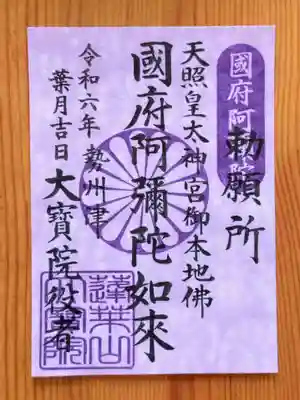 國府阿
勅願所
天照皇太神宮御本地佛
國府阿彌陀如來
令和六年 勢州津
葉月吉日 大寶院役者
蓮華山